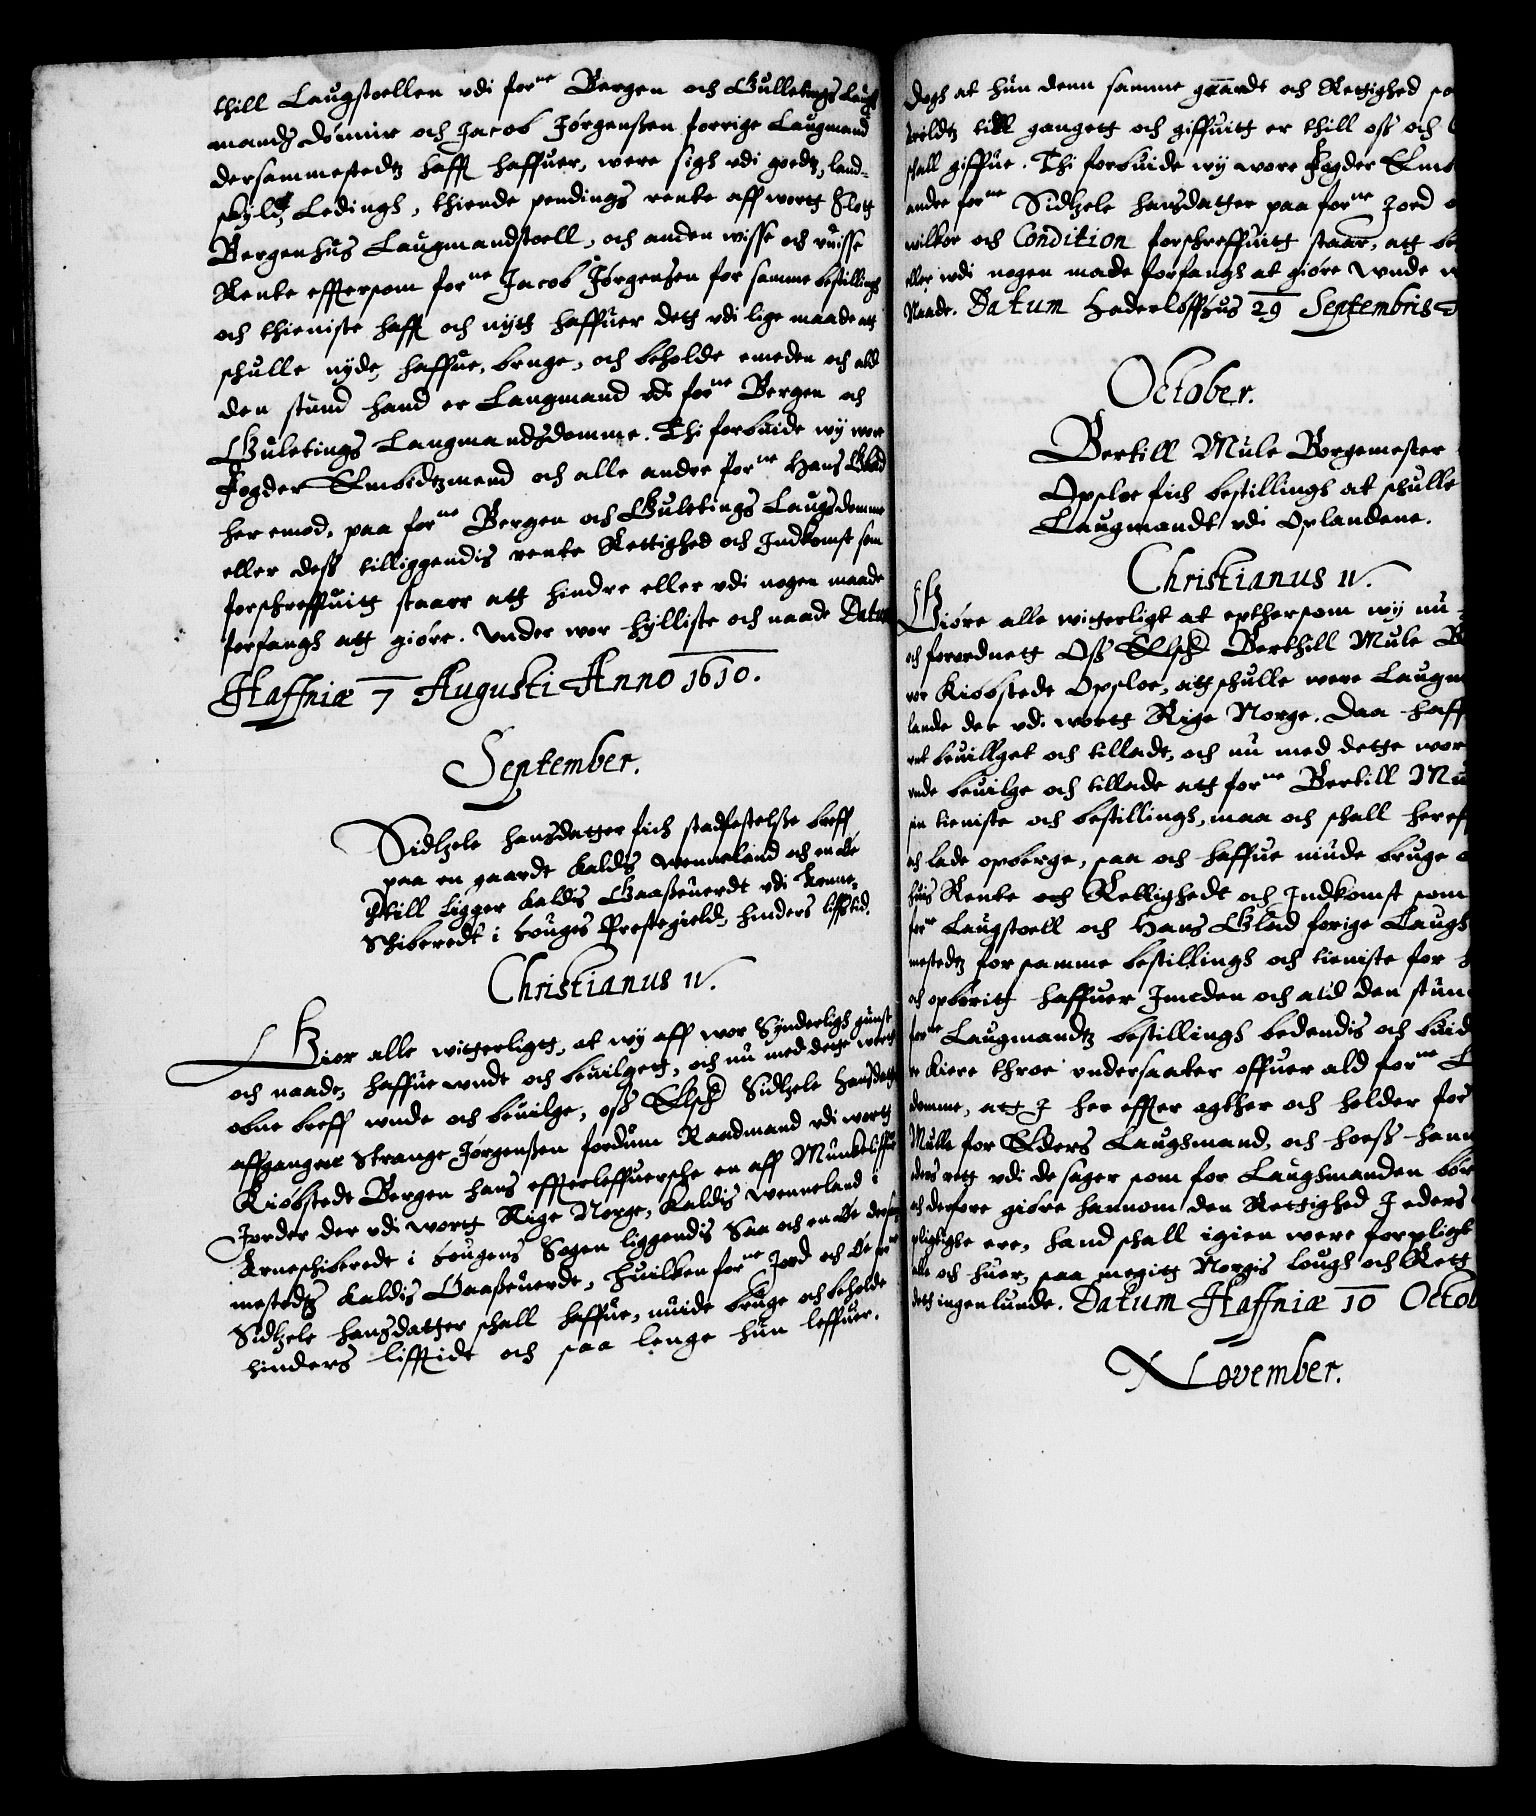 thill Laugstoellen vdi forne Bergen och Gulletings Laug
mandz dömme och Jacob Jörgenßen forrige Laugmand
dersammestedtz hafft haffuer, were sigh vdi goedtz, land-
skyld, Ledingh, thiende pendings rente aff wortt Slott
Bergenhus Laugmandstoell, och anden wisse och vuisse
Rente efftersom forne Jacob Jörgensen for samme bestilling
och thieniste hafft och nytt haffuer dett vdi lige maade att
schulle nyde, haffue, bruge, och beholde emeden och ald
den stund hand er Laugmand vdi forne Bergen och
Guletings Laugmandsdomme. Thi forbiude wy wore
Fogder Embidtzmend och alle andre forne Hans Glad
her emod, paa forne Bergen och Guletings Laugsdomme
eller deß tilliggendis rente Rettighed och Indkomst som
forschreffuitt staar att hindre eller vdi nogen maade
forfangh att giöre. Vnder wor hylliste och naade Datum
Haffniæ 7 Augusti Anno 1610.
September.
Sidtzele Hansdatter fich stadfestelße breff
paa en gaardt kaldis Wenneland och en öe
thill ligger kaldis Gaaßeuerdt vdi Arne-
schiberedt i Houges Prestegield, hinders liffstid.
Christianus IV.
Giör alle witterligtt, at wy aff wor Synderligh gunst
och naade, haffue wndt och beuilgett, och nu med dette wortt
obne breff wnde och beuilge, oß Elsch Sidtzele Hansdatter
affgangen Strange Jörgenßen fordum Raadmand vdi wortt
Kiöbstedt Bergen hans effterleffuersche en aff Munkeliffs
Jorder der vdi wortt Rige Norge, kaldis Wenneland i
Arneschiberedt i Hougens Sogen liggendis Saa och en öe dersam
mestedtz kaldis Gaaßeuerdt, huilken forne Jord och öe forne
Sidtzele hansdatter schall haffue, niude bruge och beholde
hinders liffstidt och saa lenge hun leffuer.
Dogh at hun denn samme gaardt och Rettighed
till gangett och giffuitt er thill oß och
schall giffue. Thi forbiude wy wore Fogder Emb
andre forne Sidtzele hansdatter paa forne Jord
wilkor och Condition forschreffuitt staar, att
eller wdi nogen made forfangh at giöre wnde
Naade. Datum Haderslöffhus 29 Septembris
October.
Bertill Mule Borgemester
Opsloe fich bestillingh at schulle
Laugmandt vdi Oplandene.
Christianus IV.
Giöre alle witterligt at epthersom wy nu
och forordnett Oß Elsch Berthill Mule
vor Kiöbstede Opsloe, att schulle were Laugm
lande der vdi wortt Rige Norge. Daa haff
beuillget och tilladt, och nu med dette wor
wnde beuilge och tillade att forne Bertill Mu
sin tieniste och bestillingh, maa och schall heref
och lade opberge, saa och haffue niude bruge
huis Rente och Rettighedt och Indkomst som
forne Laugstoell och Hans Glad forige Laugh
mestedtz for samme bestillingh och tieniste for
och opböritt haffuer Imeden och ald den stun
forne Laugmandtz bestillingh bedendis och biud
Kiere throe vndersaater offuer ald forne
domme, att I her effter agther och holder for
Mulle for Eders Laughmand, och hoeß hann
eders rett vdi de sager som for Laughmanden bör
och derfore giöre hannom den Rettighed I eders
pligtighe ere, hand schall igien were forpligt
alle och huer, saa megitt Norgis lough och Rett
dett ingenlunde. Datum Haffniæ 10 Octob
November.